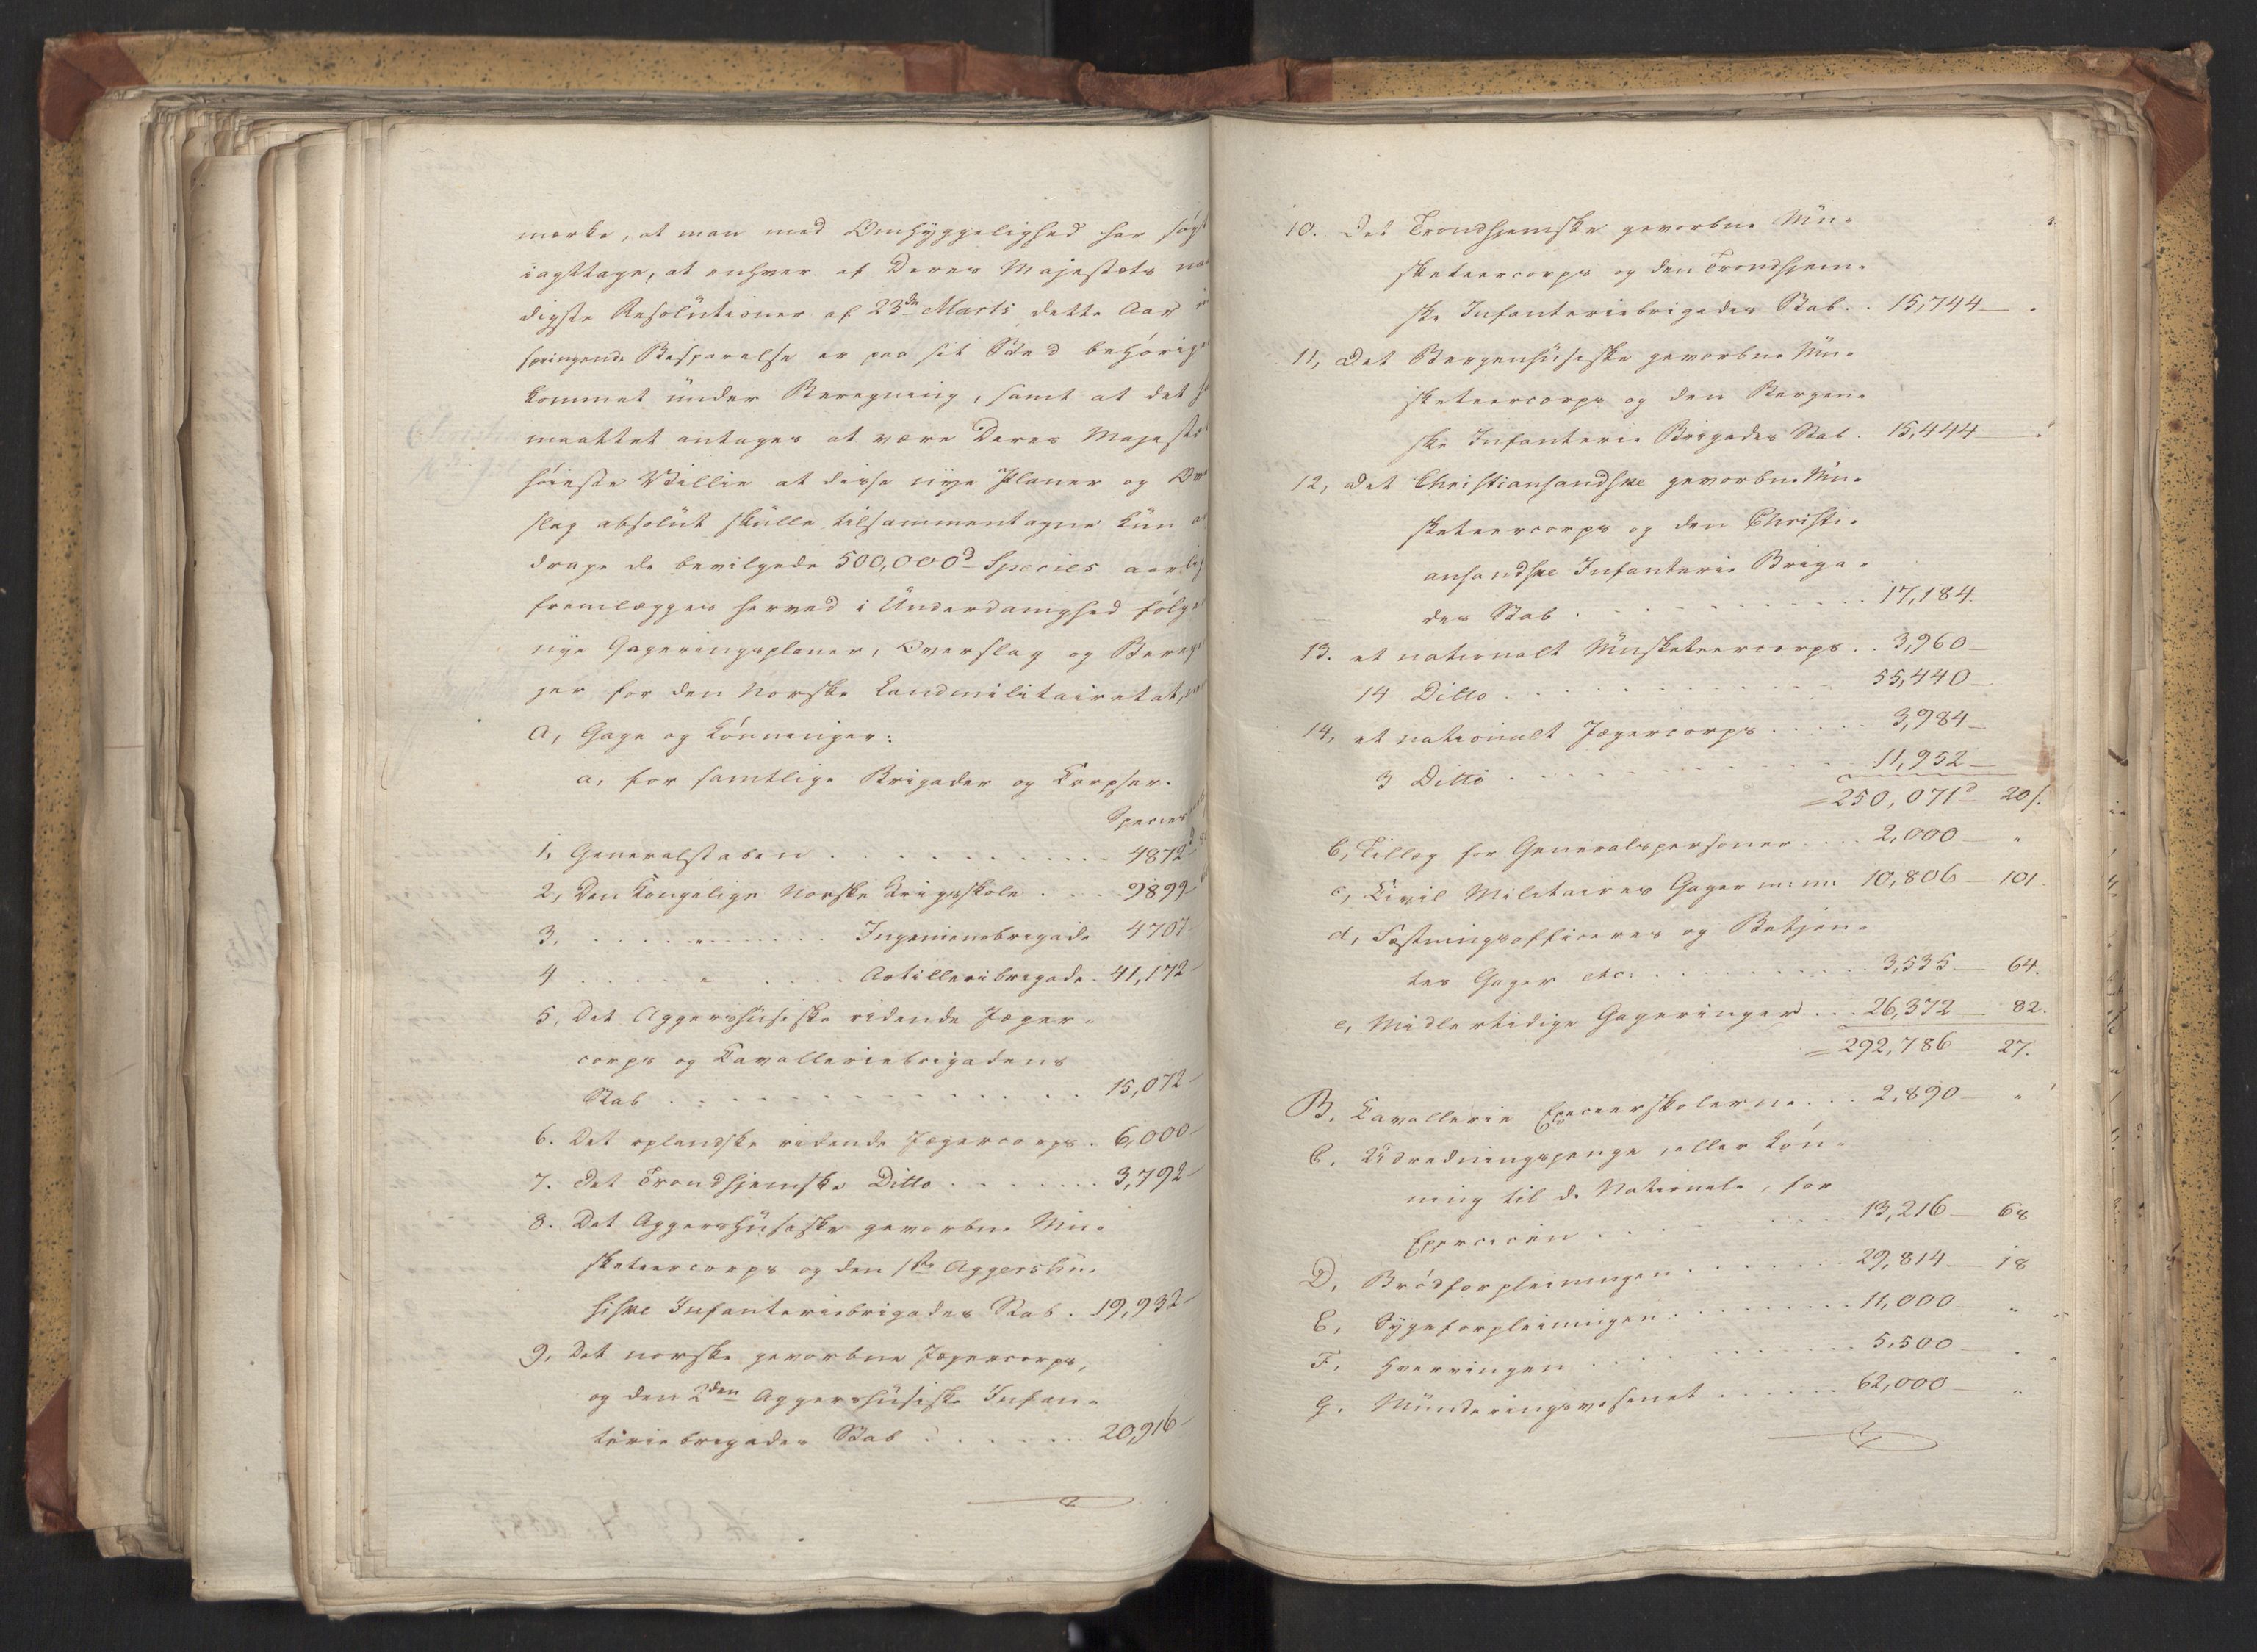 mærke, at man med Omhyggelighed har søgt
iagttage, at enhver af Deres Majestæts naa
digste Resolutioner af 23de Marts dette Aar
springende Besparelse er paa sit Sted behørigen
kommet under Beregning, samt at det
maattet antages at være Deres Majestæts
høieste Villie at disse nye Planer og Over
slag absolut skulle tilsammentagne kun
drage de bevilgede 500,000d Species aarlig
fremlægges herved i Underdanighed følgende
nye Gageringsplaner, Overslag og Beregnin
ger for den Norske Landmilitairetat,
A, Gage og Lønninger:
a, for samtlige Brigader og Corpser.
Species
1, Generalstaben . . . . 4872
2, Den Kongelige Norske Krigsskole . . . 9899
3. . . . " . . . Ingenieurbrigade 4707
4 . . . " . . . Artilleribrigade. 41,172
5, Det Aggershusiske ridende Jæger-
corps og Cavalleriebrigadens
Stab . . . . 15,072
6. Det oplandske ridende Jægercorps. 6,000
7. Det Trondhjemske Ditto . . . . 3,792
8. Det Aggershusiske gevorbne Mu-
sketeercorps og den 1ste Aggershu-
siske Infanteriebrigades Stab. 19,932
9, Det norske gevorbne Jægercorps,
og den 2den Aggershusiske Infan-
teriebrigades Stab . . . . 20,916
10. Det Trondhjemske gevorbne Mu-
sketeercorps og den Trondhjem-
ske Infanteriebrigades Stab. . 15,744 —
11, Det Bergenhusiske gevorbne Mu-
sketeercorps og den Bergen-
ske Infanterie Brigades Stab. 15,444
12, Det Christiansandske gevorbne Mu-
sketeercorps og den Christi-
ansandske Infanterie Briga-
des Stab . . . . 17,184.
13. et nationalt Musketeercorps. . 3,960 —
14 Ditto . . . . 55,440 —
14, et nationalt Jægercorps . . . . 3,984 —
3 Ditto . . . . 11,952 —
= 250,071d 20 s.
b, Tillæg for Generalspersoner . . . 2,000 "
c, Civil Militaires Gager m: m: 10,806 — 101.
d, Fæstningsofficerers og Betjen-
tes Gager etc: . . . . 3,535 — 64.
e, Midlertidige Gageringer . . . 26,372 — 82.
= 292,786 27.
B, Cavallerie Exerceerskolerne. . . 2,890 — "
C. Udredningspenge, eller Løn-
ning til de Nationale, for
Exercicen . . . . 13,216 — 68
D, Brødforpleiningen . . . . 29,814 — 18
E, Sygeforpleiningen . . . . 11,000 — "
F, Hvervingen . . . . 5,500 — "
G, Munderingsvæsenet . . . . 62,000 — "